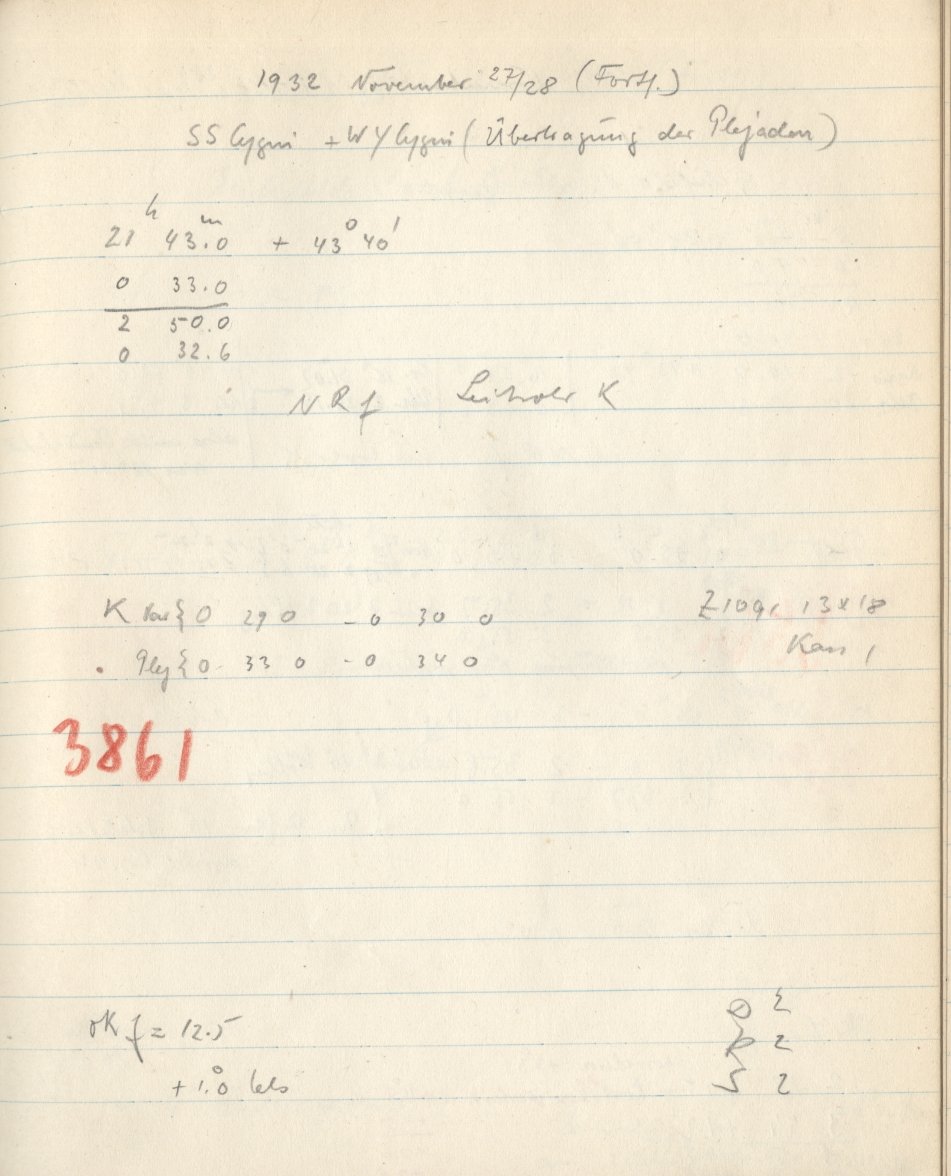 1932 November 27/28 (Forts.)
SS Cygni + WY Cygni (Übertragung der Plejaden)
21h 43.0m + 43° 40'
0 33.0
2 50.0
0 32.6
NRf K
K Var { 0 29 0 - 0 30 0 Z109, 13x18
Plej { 0 33 0 - 0 34 0 Kass 1
3861
K f = 12.5 2
+ 1.0 Cels 2
S 2